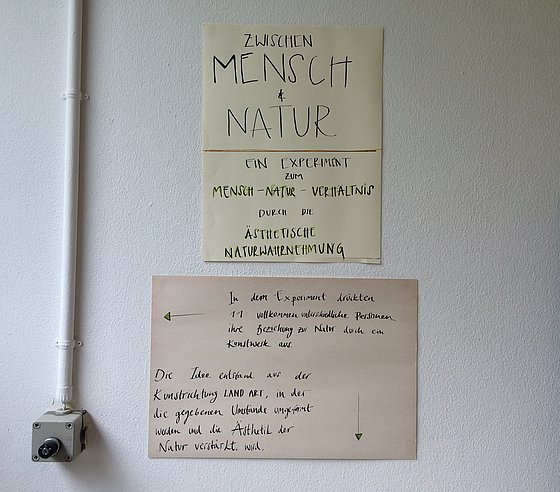 ZWISCHEN
MENSCH
&
NATUR
EIN EXPERIMENT
ZUM
MENSCH - NATUR - VERHÄLTNIS
DURCH DIE
ÄSTHETISCHE
NATURWAHRNEHMUNG
In dem Experiment drückten
11 vollkommen unterschiedliche Personen
ihre Beziehung zur Natur durch ein
Kunstwerk aus.
Die Idee entstand aus der
Kunstrichtung LAND ART, in der
die gegebenen Umstände umgeformt
werden und die Ästhetik der
Natur verstärkt wird.